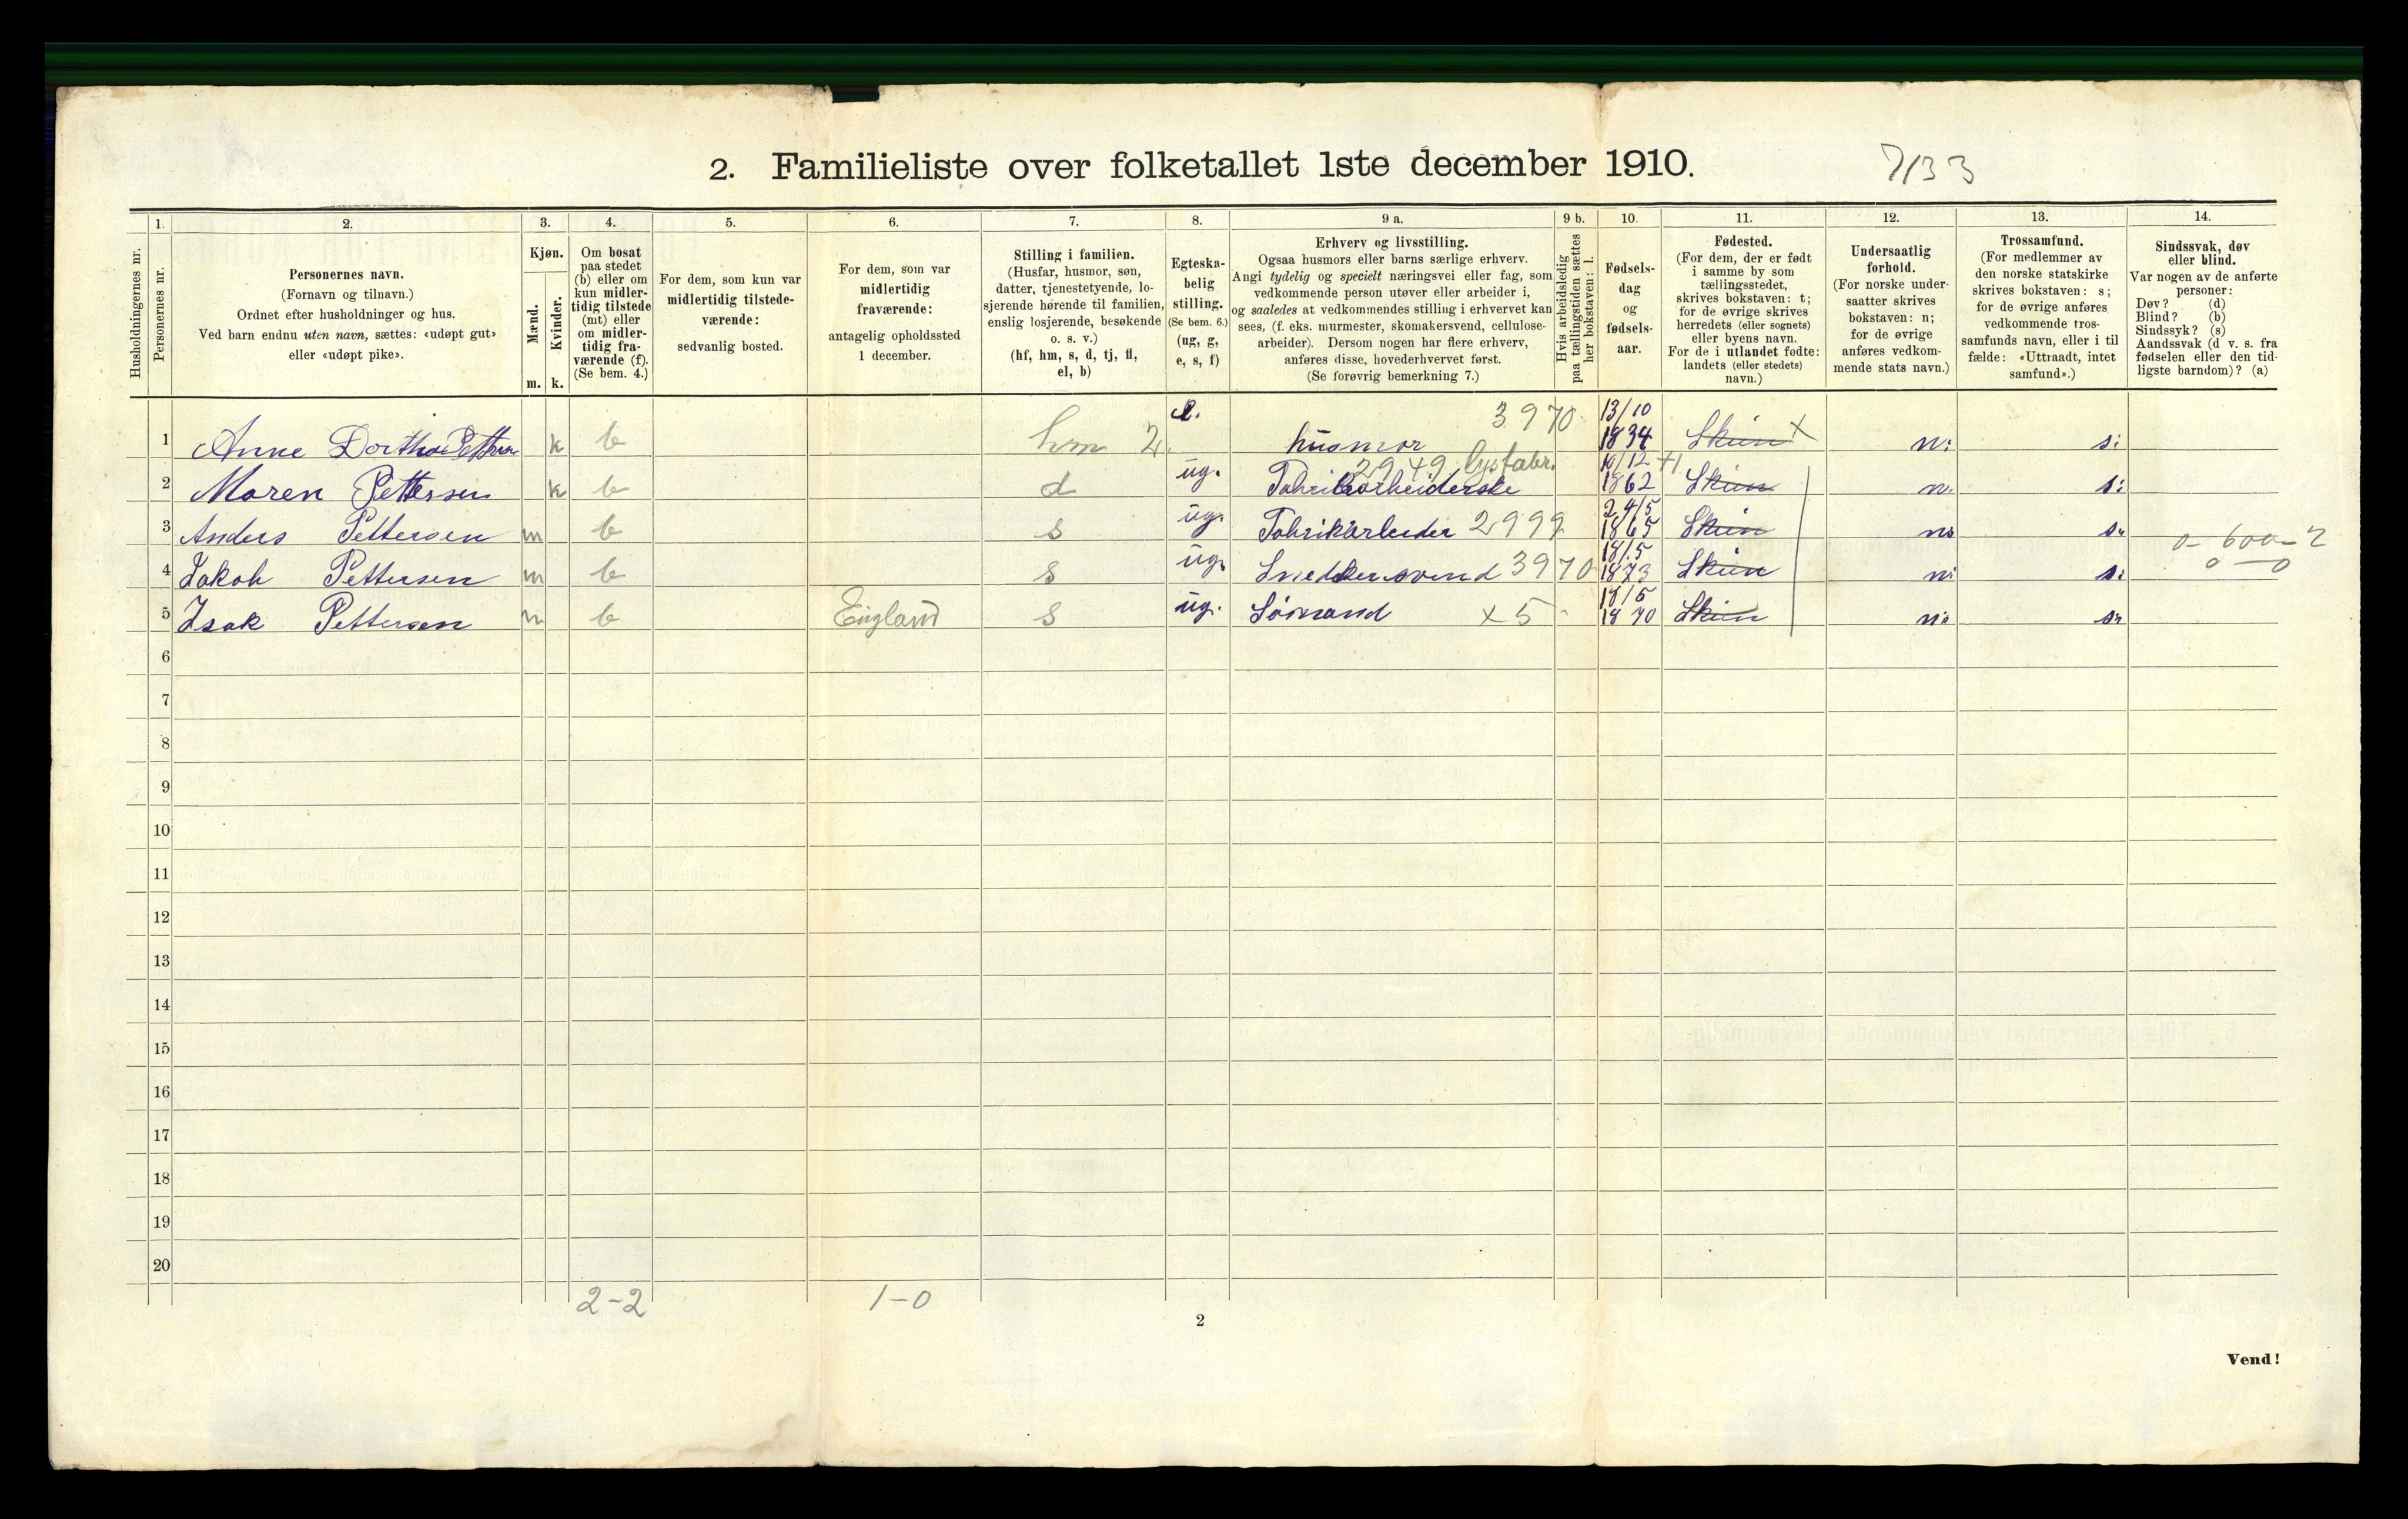 2. Familieliste over folketallet 1ste december 1910.
7133
Husholdningernes nr.
1.
Personernes nr.
2.
Personernes navn.
(Fornavn og tilnavn.)
Ordnet efter husholdninger og hus.
Ved barn endnu uten navn, sættes: «udøpt gut»
eller «udøpt pike».
3.
Kjøn.
Mænd.
Kvinder.
m. k.
4.
Om bosat
paa stedet
(b) eller om
kun midler-
tidig tilstede
(mt) eller
om midler-
tidig fra-
værende (f).
(Se bem. 4.)
5.
For dem, som kun var
midlertidig tilstede-
værende:
sedvanlig bosted.
6.
For dem, som var
midlertidig
fraværende:
antagelig opholdssted
1 december.
7.
Stilling i familien.
(Husfar, husmor, søn,
datter, tjenestetyende, lo-
sjerende hørende til familien,
enslig losjerende, besøkende
o. s. v.)
(hf, hm, s, d, tj, fl,
el, b)
8.
Egteska-
belig
stilling.
(Se bem. 6.)
(ug, g,
e, s, f)
9 a.
Erhverv og livsstilling.
Ogsaa husmors eller barns særlige erhverv.
Angi tydelig og specielt næringsvei eller fag, som
vedkommende person utøver eller arbeider i,
og saaledes at vedkommendes stilling i erhvervet kan
sees, (f. eks. murmester, skomakersvend, cellulose-
arbeider). Dersom nogen har flere erhverv,
anføres disse, hovederhvervet først.
(Se forøvrig bemerkning 7.)
9 b.
Hvis arbeidsledig
paa tællingstiden sættes
her bokstaven: l.
10.
Fødsels-
dag
og
fødsels-
aar.
11.
Fødested.
(For dem, der er født
i samme by som
tællingsstedet,
skrives bokstaven: t;
for de øvrige skrives
herredets (eller sognets)
eller byens navn.
For de i utlandet fødte:
landets (eller stedets)
navn.)
12.
Undersaatlig
forhold.
(For norske under-
saatter skrives
bokstaven: n;
for de øvrige
anføres vedkom-
mende stats navn.)
13.
Trossamfund.
(For medlemmer av
den norske statskirke
skrives bokstaven: s;
for de øvrige anføres
vedkommende tros-
samfunds navn, eller i til
fælde: «Uttraadt, intet
samfund».)
14.
Sindssvak, døv
eller blind.
Var nogen av de anførte
personer:
Døv? (d)
Blind? (b)
Sindssyk? (s)
Aandssvak (d v. s. fra
fødselen eller den tid-
ligste barndom)? (a)
1 Anne Dorthea Pettersen k b hm 2 e. husmor 3970 13/10 1834 Skien X n: s:
2 Maren Pettersen k b d ug. Fabrikarbeiderske 2949 lysfabr. 10/12 1862 Skien n. s:
3 Anders Pettersen m b s ug. Fabrikarbeider 2999 24/5 1865 Skien n: s:
4 Jakob Pettersen m b s ug. Snedkersvend 3970 18/5 1873 Skien n: s: 0-600-2
0 — 0
5 Isak Pettersen m b England s ug. Sömand x 5 - 18/5 1870 Skien n: s:
6
7
8
9
10
11
12
13
14
15
16
17
18
19
20
2-2 1-0
2
Vend!